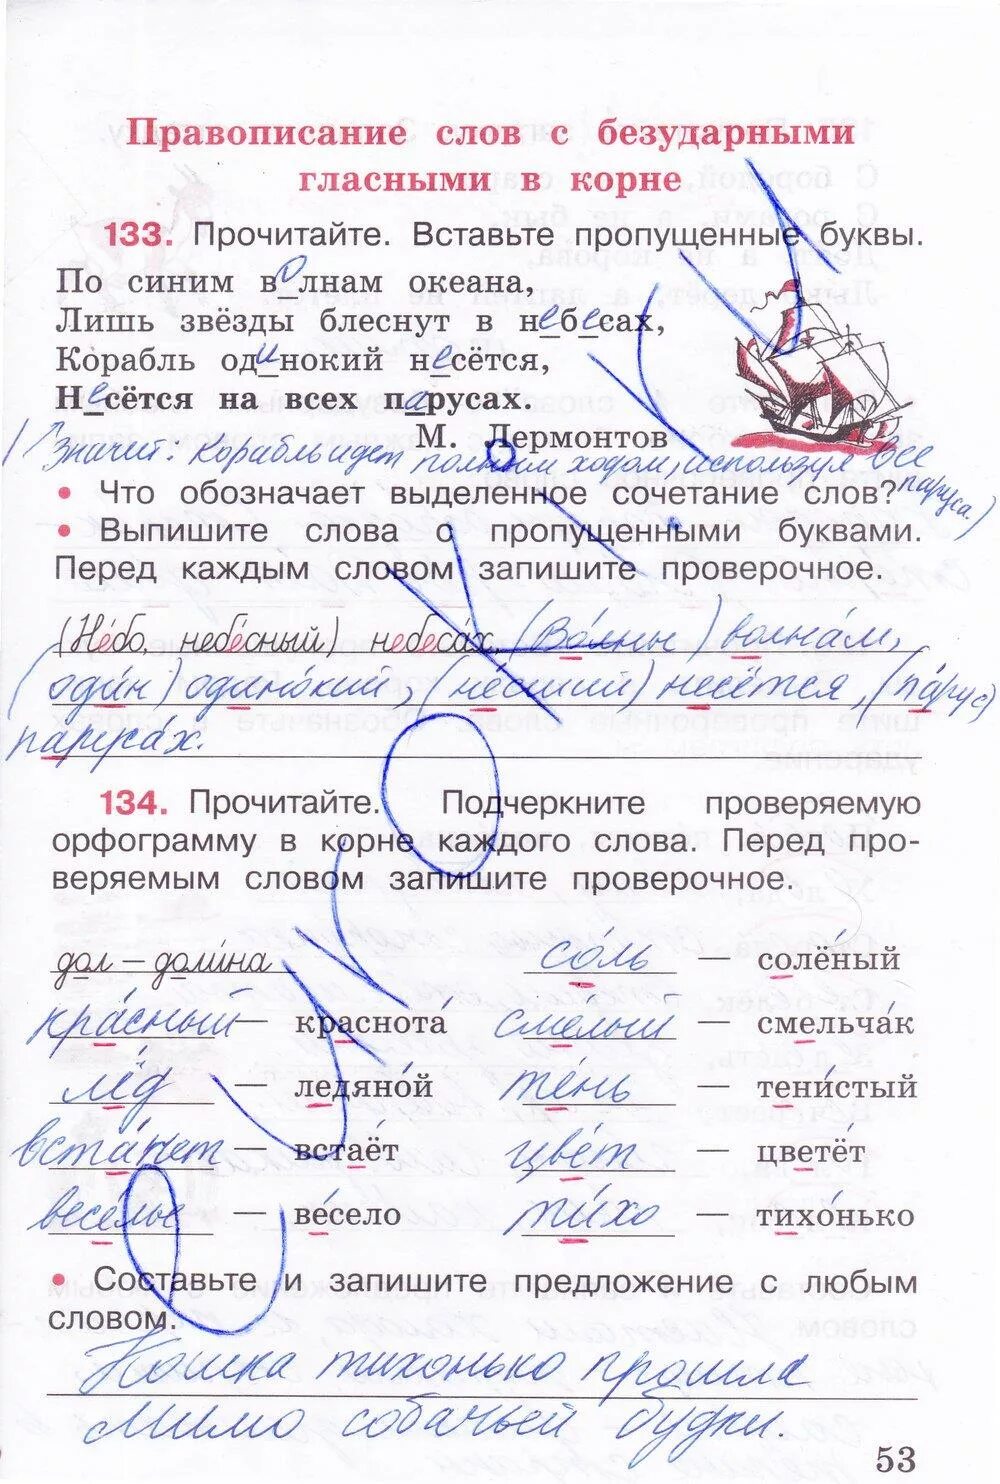 Правописание слов с безударными
гласными в корне
133. Прочитайте. Вставьте пропущенные буквы.
По синим волнам океана,
Лишь звёзды блеснут в небесах,
Корабль одинокий несётся,
Несётся на всех парусах.
М. Лермонтов
(Значит: корабль идет полным ходом, используя все
паруса.)
• Что обозначает выделенное сочетание слов?
• Выпишите слова с пропущенными буквами.
Перед каждым словом запишите проверочное.
(Не́бо, небе́сный) небеса́х, (Во́лны) волна́м,
(оди́н) одино́кий, (нёсший) несётся, (па́рус)
парусах.
134. Прочитайте. Подчеркните проверяемую
орфограмму в корне каждого слова. Перед про-
веряемым словом запишите проверочное.
дол – доли́на со́ль — солёный
кра́сный — краснота́ сме́лый — смельча́к
лёд — ледяно́й те́нь — тени́стый
вста́нет — встаёт цве́т — цветёт
весе́лье — ве́село ти́хо — тихо́нько
• Составьте и запишите предложение с любым
словом.
Кошка тихонько прошла
мимо собачьей будки.
53